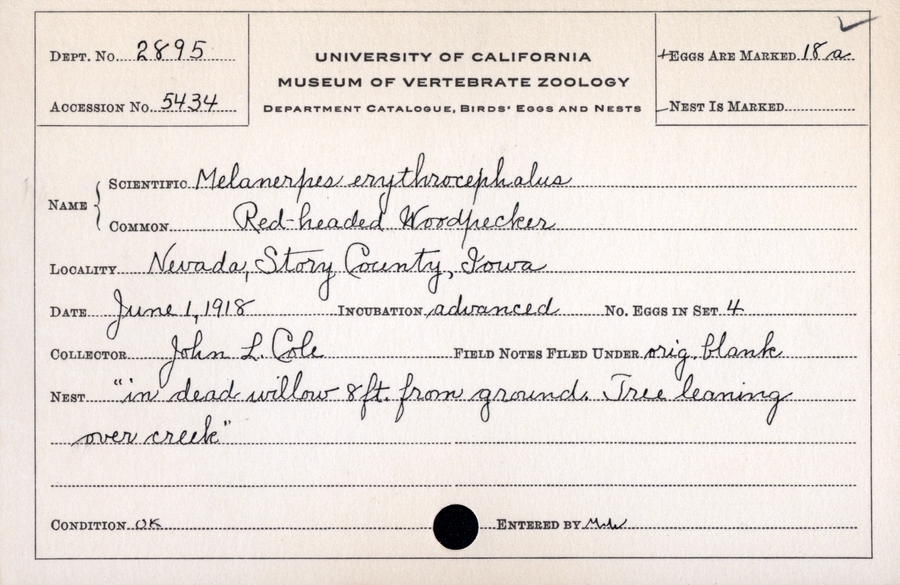 Dept. No. 2895
Accession No. 5434
University of California
Museum of Vertebrate Zoology
Department Catalogue, Birds' Eggs and Nests
+Eggs Are Marked 18a
Nest Is Marked
Name
Scientific Melanerpes erythrocephalus
Common Red-headed Woodpecker
Locality Nevada, Story County, Iowa
Date June 1, 1918 Incubation advanced No. Eggs in Set 4
Collector John L. Cole Field Notes Filed Under orig. blank
Nest "in dead willow 8 ft. from ground. Tree leaning
over creek"
Condition OK Entered by